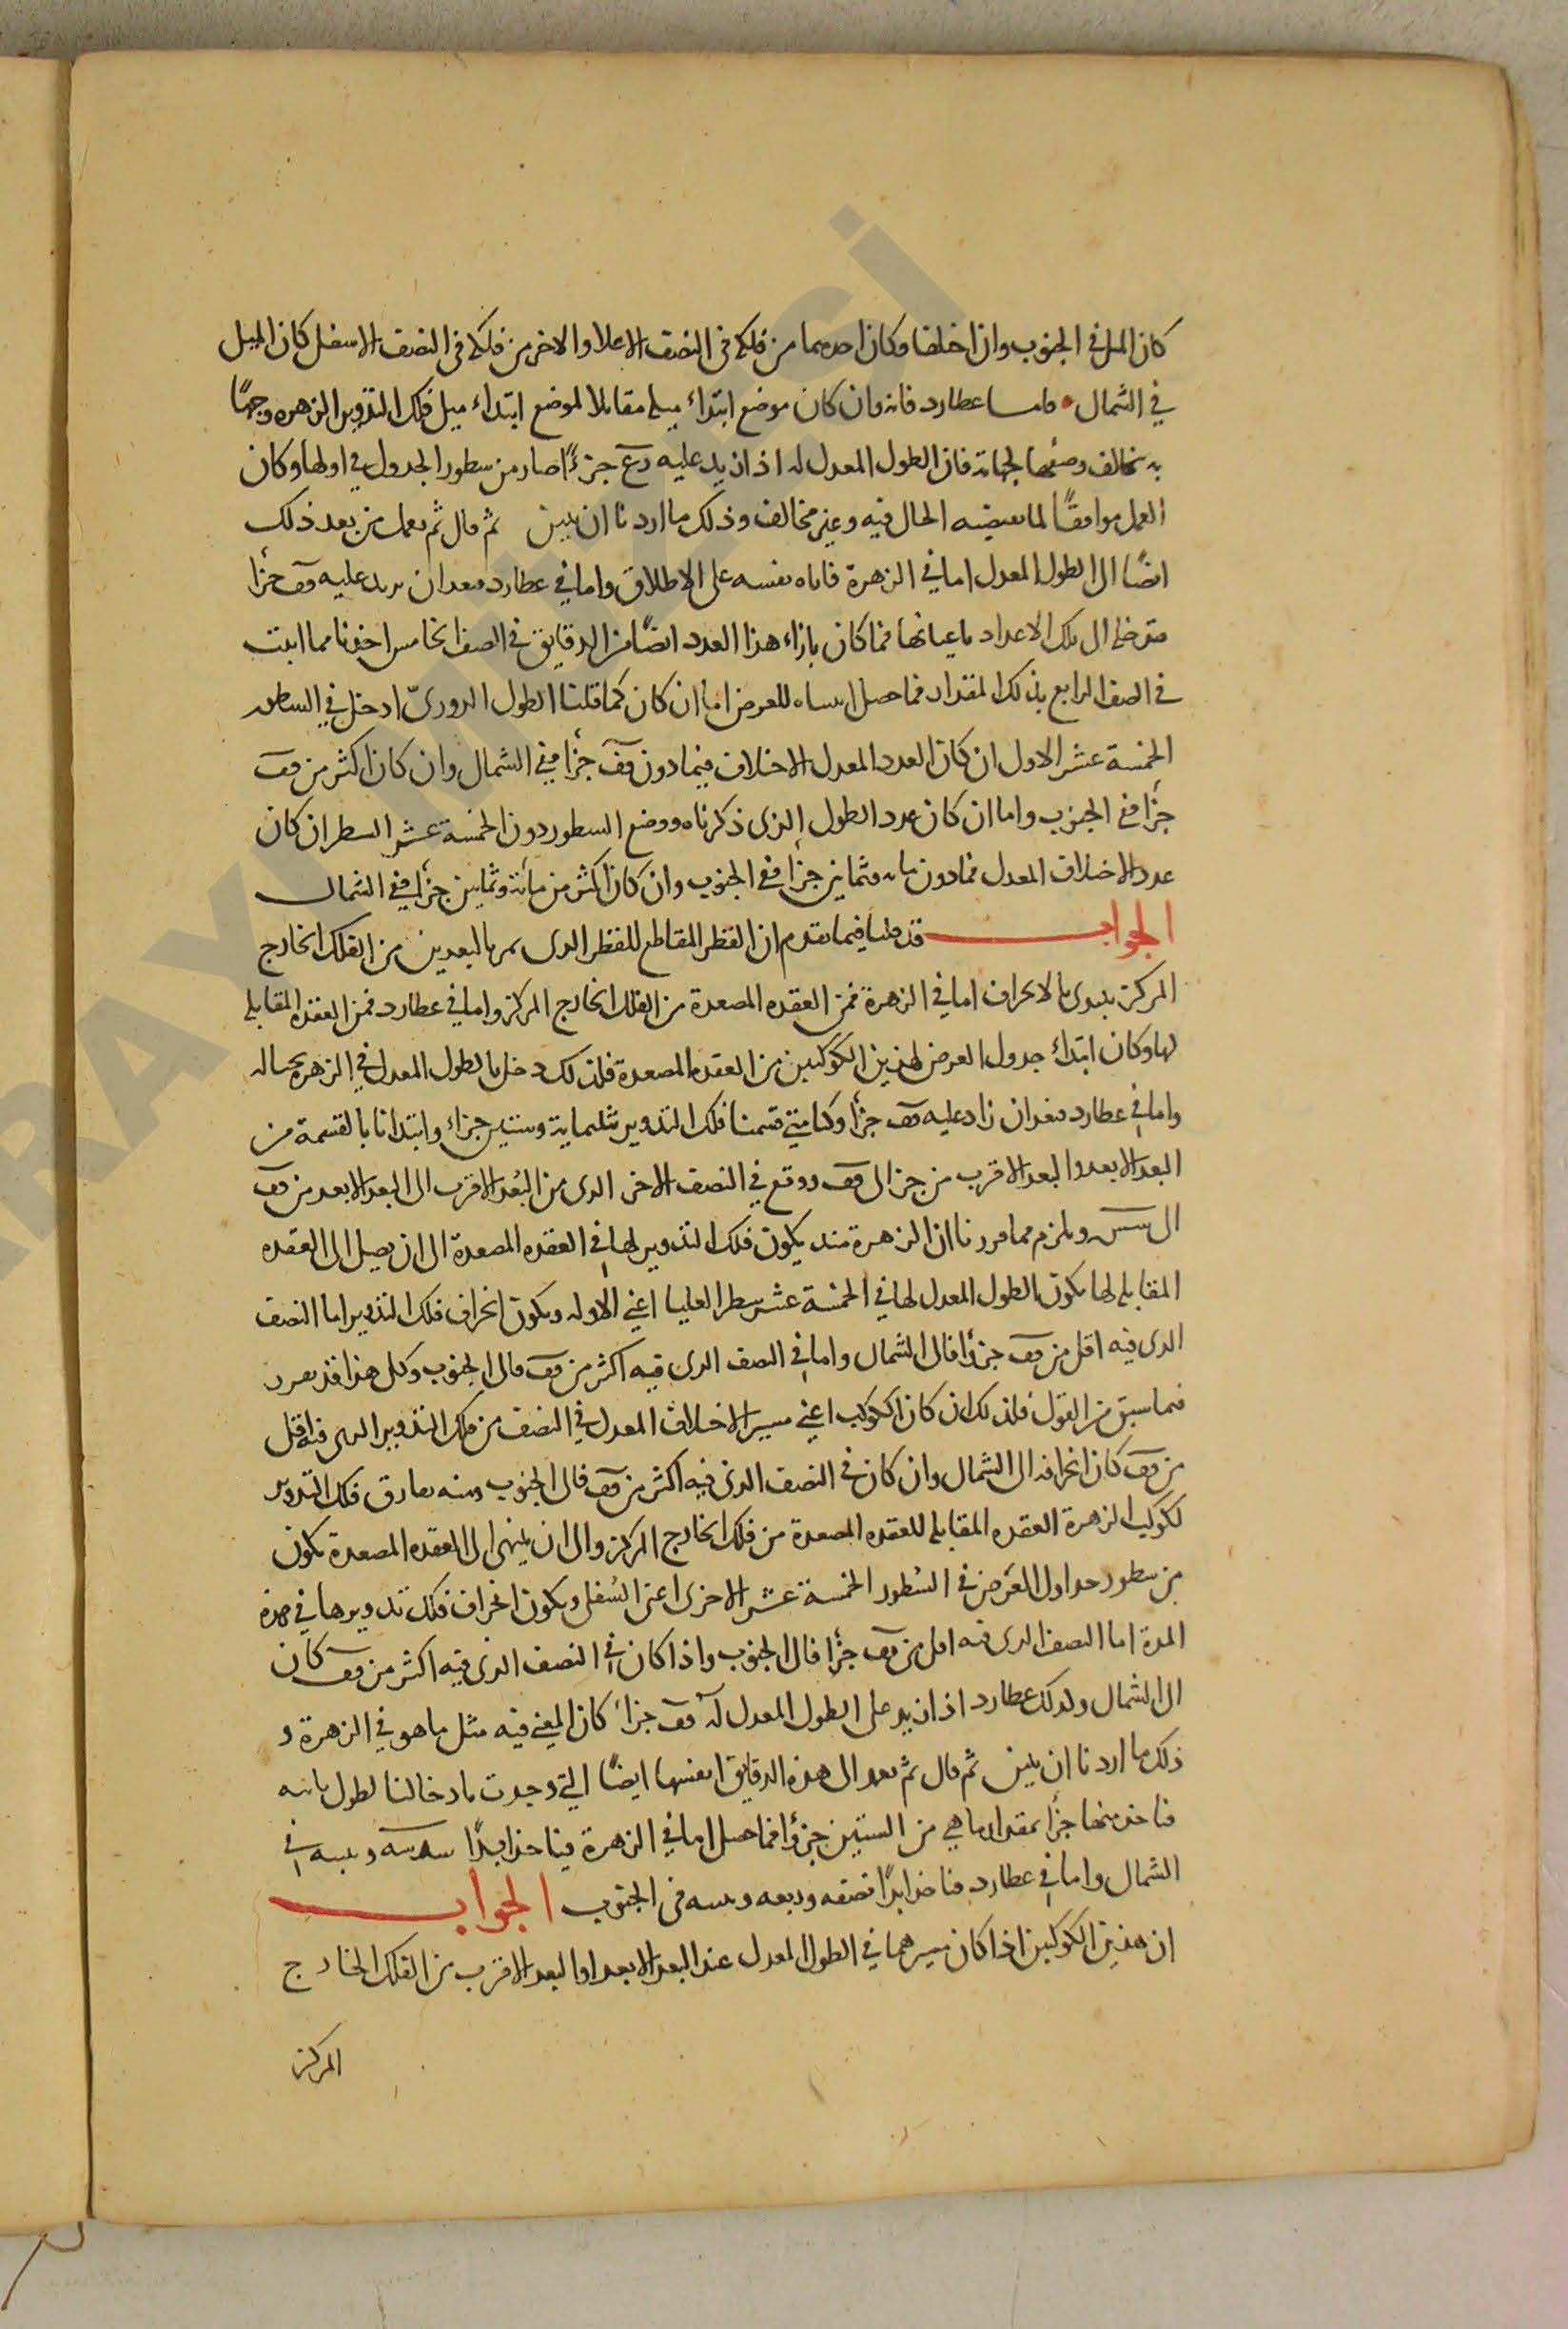 كان الميل في الجنوب وان اختلفا وكان احدهما من فلكه في النصف الاعلا والاخر من فلكه في النصف الاسفل كان الميل
في الشمال • واما عطارد فانه وان كان موضع ابتداء ميله مقابلا لموضع ابتداء ميل فلك التدوير الزهره وجهتا
به تخالف وضعها لجهاته فان الطول المعدل له اذا زيد عليه رع جزءًا صار من سطور الجدول في اولها وكان
العمل موافقًا لما الحال فيه وغير مخالف وذلك ما اردنا ان نبين ثم قال ثم نعمل من بعد ذلك
ايضًا الى الطول المعدل اما في الزهرة فاياه نفسه على الاطلاق واما في عطارد فبعد ان نزيد عليه قف جزأ
الى تلك الاعداد باعيانها فما كان بازاء هذا العدد ايضًا من الدقايق في الصف الخامس اخذنا مما اثبت
في الصف الرابع بذلك المقدار فما حصل للعرض اما ان كان كما قلنا الطول الدوريّ ادخل في السطور
الخمسة عشر الاول ان كان العدد المعدل الاختلاف فيما دون قف جزأ ففي الشمال وان كان اكثر من قف
جزأ ففي الجنوب واما ان كان عدد الطول الذي ذكرناه ووضع السطور دون الخمسة عشر السطر ان كان
عدد الاختلاف المعدل فما دون مايه وثمانين جزأ ففي الجنوب وان كان اكثر من مائة وثمانين جزأ ففي الشمال
الجواب قد قلنا فيما تقدم ان القطر المقاطع للقطر الذي يمر بالبعدين من الفلك الخارج
المركز يبتدي بالانحراف اما في الزهرة فمن العقده المصعدة من الفلك الخارج المركز واما في عطارد فمن العقده المقابله
لها وكان ابتداء جدول العرض لهذين الكوكبين من العقده المصعدة فلذلك دخل بالطول المعدل في الزهرة بحاله
واما في عطارد فبعد ان زاد عليه قف جزأ وكنا متى قسمنا فلك التدوير ثلثماية وستين جزاء وابتدانا بالقسمة من
البعد الابعد والبعد الاقرب من جز الى قف ووقع في النصف الاخر الذي من البُعد الاقرب الى البعد الابعد من قف
الى شس ويلزم مما قررنا ان الزهرة منذ يكون فلك التدوير لها في العقده المصعدة الى ان يصل الى العقده
المقابله لها يكون الطول المعدل لها في الخمسة عشر سطرا العليا اعني الاوله ويكون انحراف فلك التدوير اما النصف
الذي فيه اقل من قف جزؤا فالى الشمال واما في النصف الذي فيه اكثر من قف فالى الجنوب وكل هذا قد تقرر
فيما سبق من القول فلذلك ان كان الكوكب اعني مسير الاختلاف المعدل في النصف من فلك التدوير الذي فيه اقل
من قف كان انحرافه الى الشمال وان كان في النصف الذي فيه اكثر من قف فالى الجنوب ومنذ يفارق فلك التدوير
لكوكب الزهرة العقده المقابله للعقده المصعدة من فلك الخارج المركز والى ان ينتهي الى العقده المصعدة يكون
من سطور جداول العرض في السُطور الخمسة عشر الاخرى اعني السُفلى ويكون انحراف فلك تدويرها في هذه
المدة اما النصف الذي فيه اقل من قف جزأ فالى الجنوب واذا كان في النصف الذي فيه اكثر من قف كان
الى الشمال ولذلك عطارد اذا زيد على الطول المعدل له قف جزأ كان المعنى فيه مثل ما هو في الزهرة و
ذلك ما اردنا ان نبين ثم قال ثم نعمد الى هذه الدقايق انفسها ايضًا التي وجدت بادخالنا لطول
فناخذ منها جزأ بمقدار ما هي من الستين جزؤا فما حصل اما في الزهرة فيناخذ ابدًا سدسه في
الشمال واما في عطارد فناخذ ابدًا نصفه وربعه في الجنوب الجواب
ان هذين الكوكبين اذا كان مسيرهما في الطول المعدل عند البعد الابعد او البعد الاقرب من الفلك الخارج
المركز